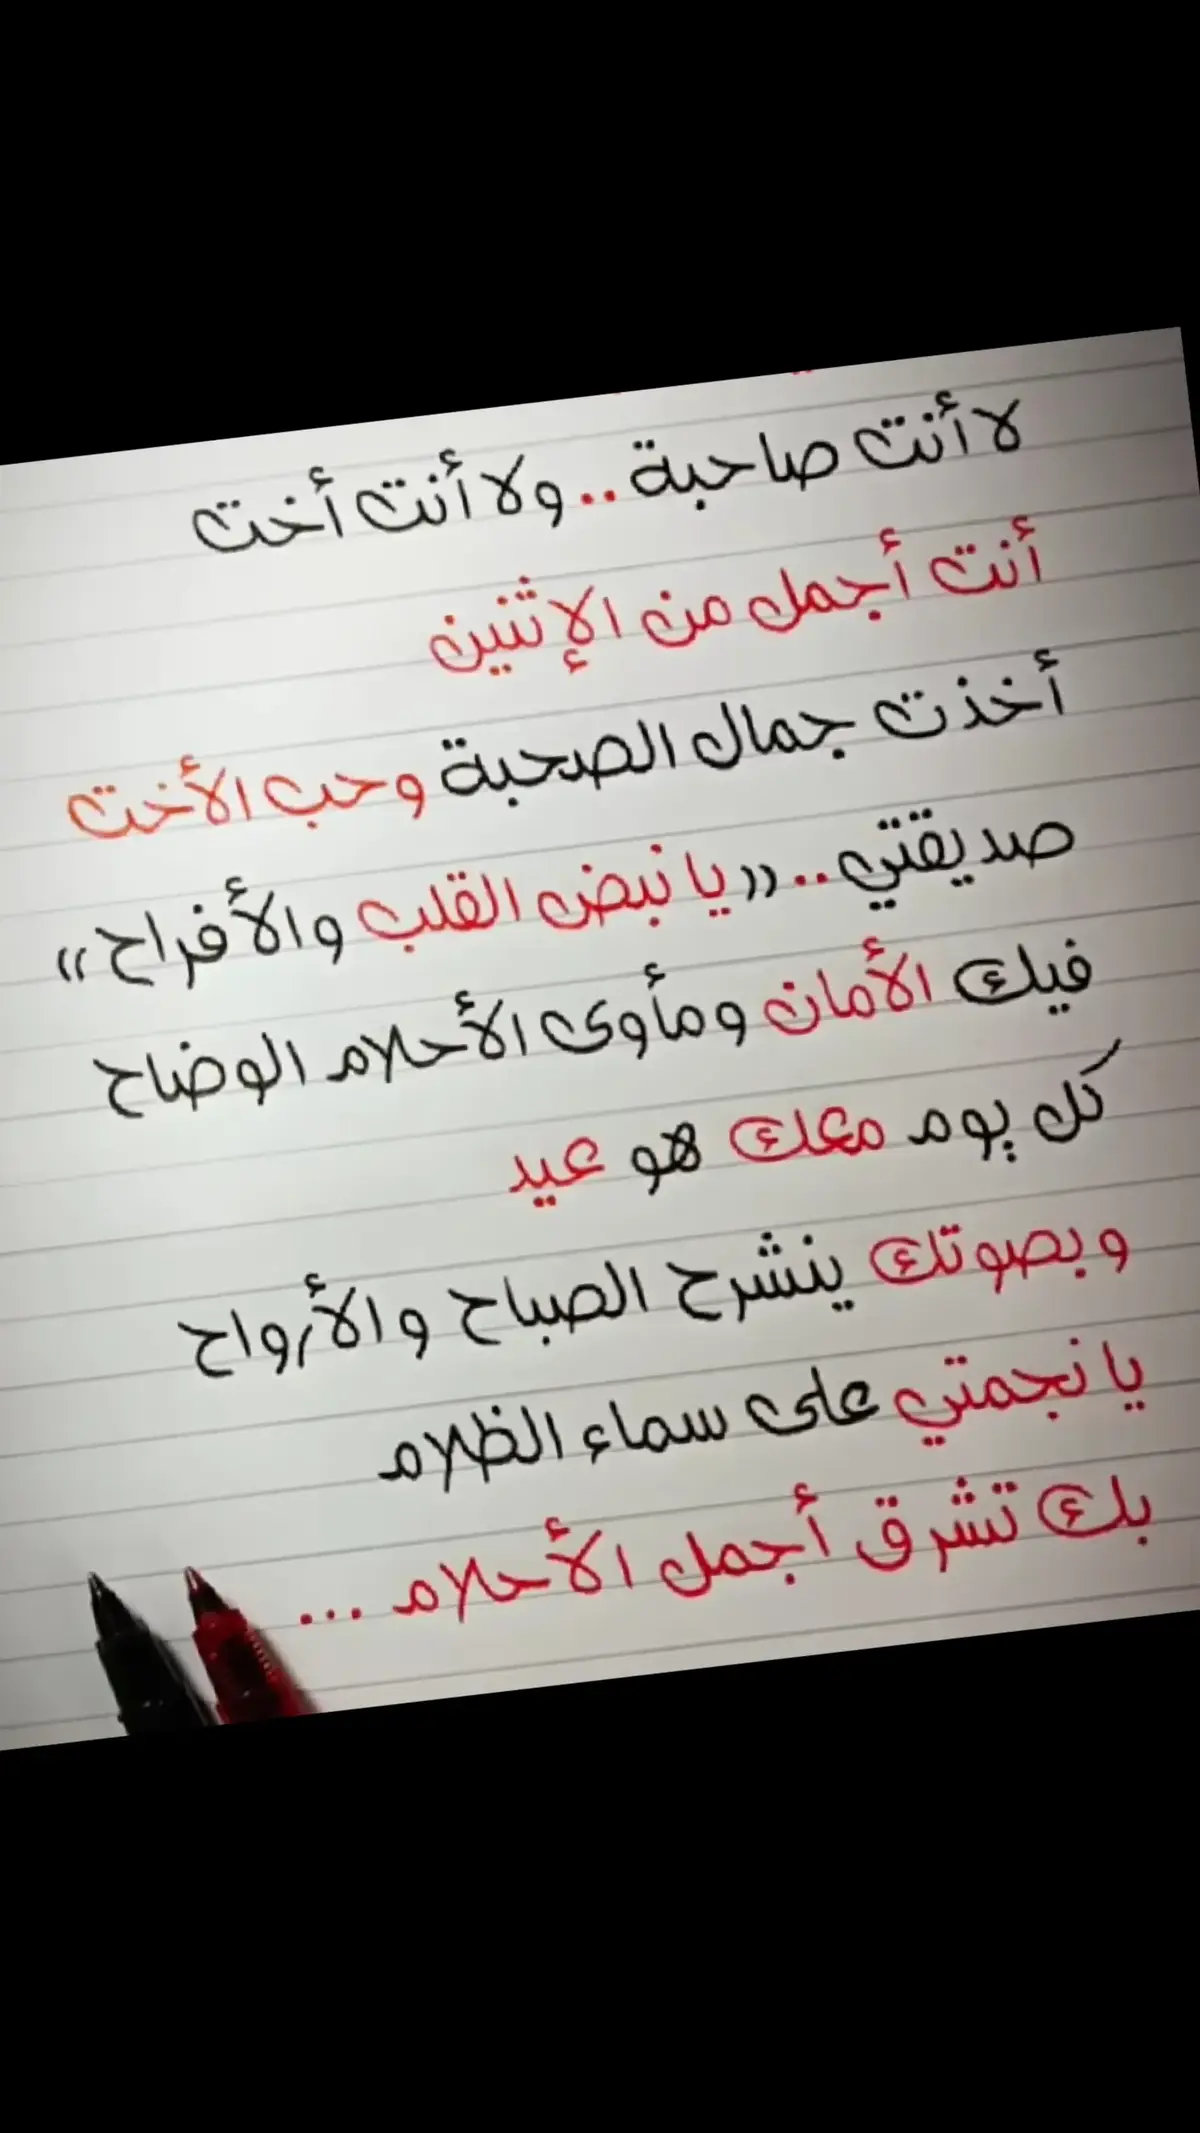 لا أنت صاحبة .. ولا أنت أخت
أنت أجمل من الإثنين
أخذت جمال الصحبة وحب الأخت
صديقتي .. ((يا نبض القلب والأفراح))
فيك الأمان ومأوى الأحلام الوضاح
كل يوم معك هو عيد
وبصوتك ينشرح الصباح والأرواح
يا نجمتي على سماء الظلام
بك تشرق أجمل الأحلام ...